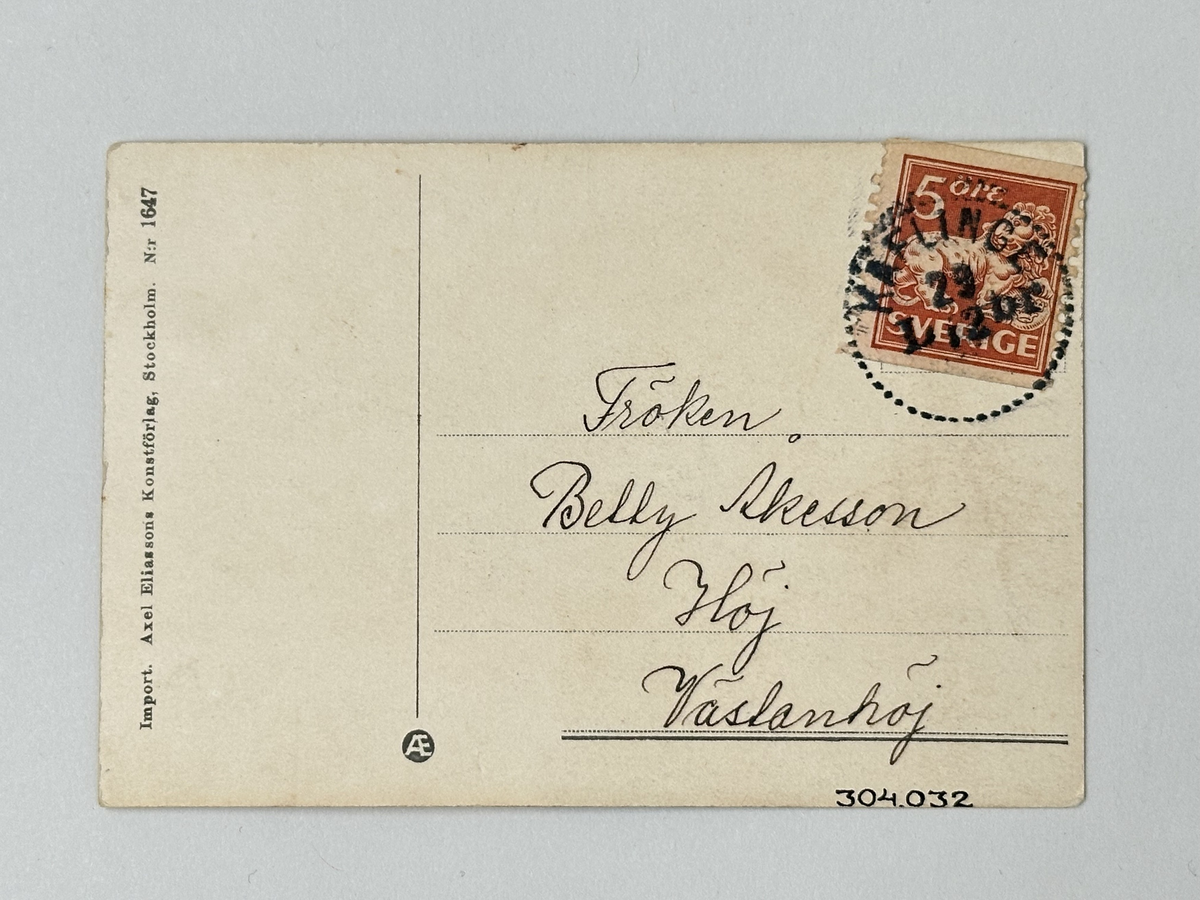 Import. Axel Eliassons Konstförlag, Stockholm. N:r 1647
5 ÖRE
SVERIGE
29
12
Fröken
Betty Åkesson
Höj
Västanhöj
Æ
304.032